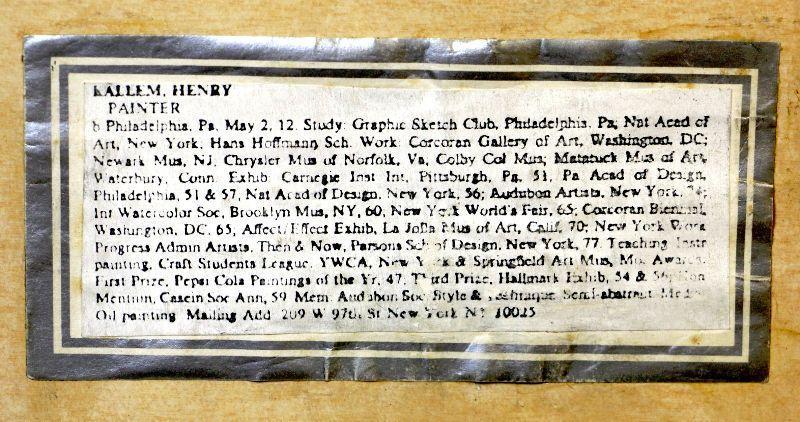 KALLEM, HENRY
PAINTER
b Philadelphia, Pa, May 2, 12. Study: Graphic Sketch Club, Philadelphia, Pa; Nat Acad of
Art, New York; Hans Hoffmann Sch. Work: Corcoran Gallery of Art, Washington, DC;
Newark Mus, NJ; Chrysler Mus of Norfolk, Va; Colby Col Mus; Mattatuck Mus of Art,
Waterbury, Conn. Exhib: Carnegie Inst Int, Pittsburgh, Pa, 51; Pa Acad of Design,
Philadelphia, 51 & 57; Nat Acad of Design, New York, 56; Audubon Artists, New York, 74;
Int Watercolor Soc, Brooklyn Mus, NY, 60; New York World's Fair, 65; Corcoran Biennial,
Washington, DC, 65; Affect/Effect Exhib, La Jolla Mus of Art, Calif, 70; New York Work
Progress Admin Artists, Then & Now, Parsons Sch of Design, New York, 77. Teaching: Instr
painting, Craft Students League, YWCA, New York & Springfield Art Mus, Mo. Awards:
First Prize, Pepsi Cola Paintings of the Yr, 47; Third Prize, Hallmark Exhib, 54 & 56; Hon
Mention, Casein Soc Ann, 59. Mem: Audubon Soc. Style & Technique: Semi-abstract. Media:
Oil painting. Mailing Add: 209 W 97th St New York NY 10025